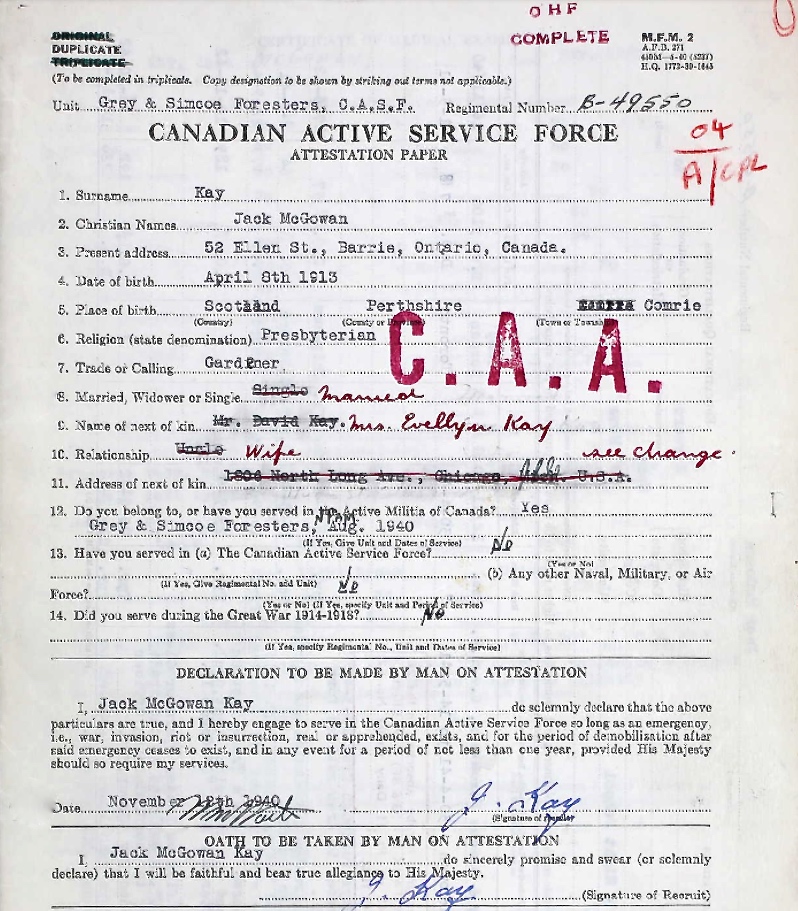 O H F
COMPLETE
ORIGINAL
DUPLICATE
TRIPLICATE
M.F.M. 2
A.F.B. 271
H.Q. 1772-39-1645
(To be completed in triplicate. Copy designation to be shown by striking out terms not applicable.)
Unit Grey & Simcoe Foresters, C.A.S.F. Regimental Number B-49550
CANADIAN ACTIVE SERVICE FORCE
ATTESTATION PAPER
04
A/CPL
1. Surname Kay
2. Christian Names Jack McGowan
3. Present address 52 Ellen St., Barrie, Ontario, Canada.
4. Date of birth April 8th 1913
5. Place of birth Scotland Perthshire Comrie
(Country) (County or Province) (Town or Township)
6. Religion (state denomination) Presbyterian
C.A.A.
7. Trade or Calling Gardener
8. Married, Widower or Single Single Married
9. Name of next of kin Mr. David Kay. Mrs. Evellyn Kay
10. Relationship Uncle Wife see change
11. Address of next of kin 1806 North Long Ave., Chicago, U.S.A.
12. Do you belong to, or have you served in the Active Militia of Canada? Yes
Grey & Simcoe Foresters, NPAM Aug. 1940
(If Yes, Give Unit and Dates of Service)
13. Have you served in (a) The Canadian Active Service Force? No
(Yes or No)
(b) Any other Naval, Military, or Air
(If Yes, Give Regimental No. and Unit)
Force? No
(Yes or No) (If Yes, specify Unit and Period of Service)
14. Did you serve during the Great War 1914-1918? No
(If Yes, specify Regimental No., Unit and Dates of Service)
DECLARATION TO BE MADE BY MAN ON ATTESTATION
I, Jack McGowan Kay do solemnly declare that the above
particulars are true, and I hereby engage to serve in the Canadian Active Service Force so long as an emergency,
i.e., war, invasion, riot or insurrection, real or apprehended, exists, and for the period of demobilization after
said emergency ceases to exist, and in any event for a period of not less than one year, provided His Majesty
should so require my services.
Date November 12th 1940 J. Kay
(Signature of Recruit)
OATH TO BE TAKEN BY MAN ON ATTESTATION
I, Jack McGowan Kay do sincerely promise and swear (or solemnly
declare) that I will be faithful and bear true allegiance to His Majesty.
J. Kay (Signature of Recruit)